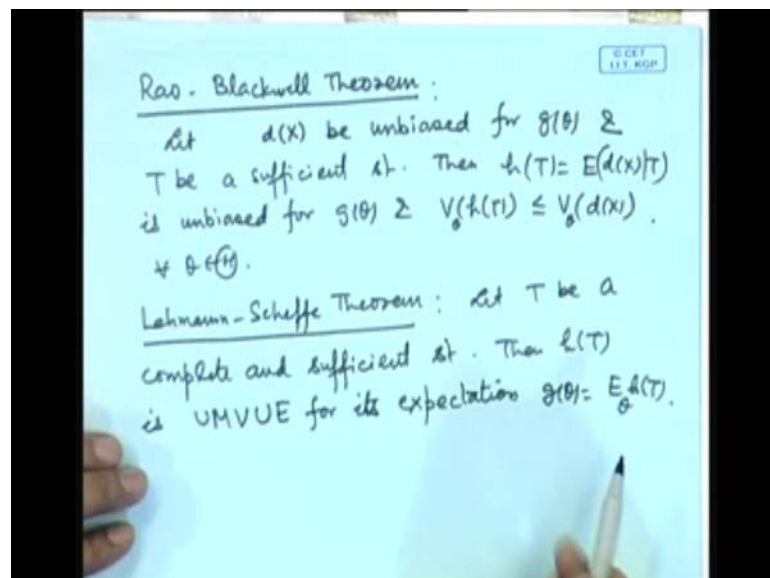 © CET
I.I.T. KGP
Rao-Blackwell Theorem :
Let d(X) be unbiased for g(θ) &
T be a sufficient st. Then h(T)= E(d(X)|T)
is unbiased for g(θ) & V_θ(h(T)) ≤ V_θ(d(X)) .
∀ θ ∈ Ⓗ.
Lehmann-Scheffe Theorem : Let T be a
complete and sufficient st. Then h(T)
is UMVUE for its expectation g(θ)= E_θ h(T).